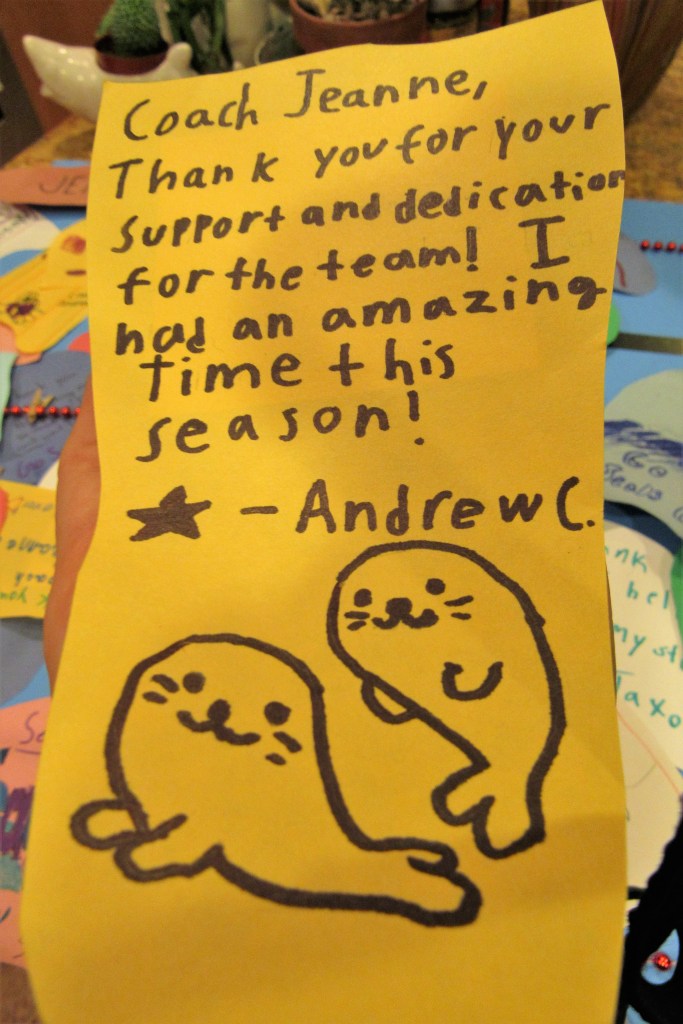 Coach Jeanne,
Thank you for your
support and dedication
for the team! I
had an amazing
time this
season!
★ - Andrew C.
JE
Go
Seals
help
my